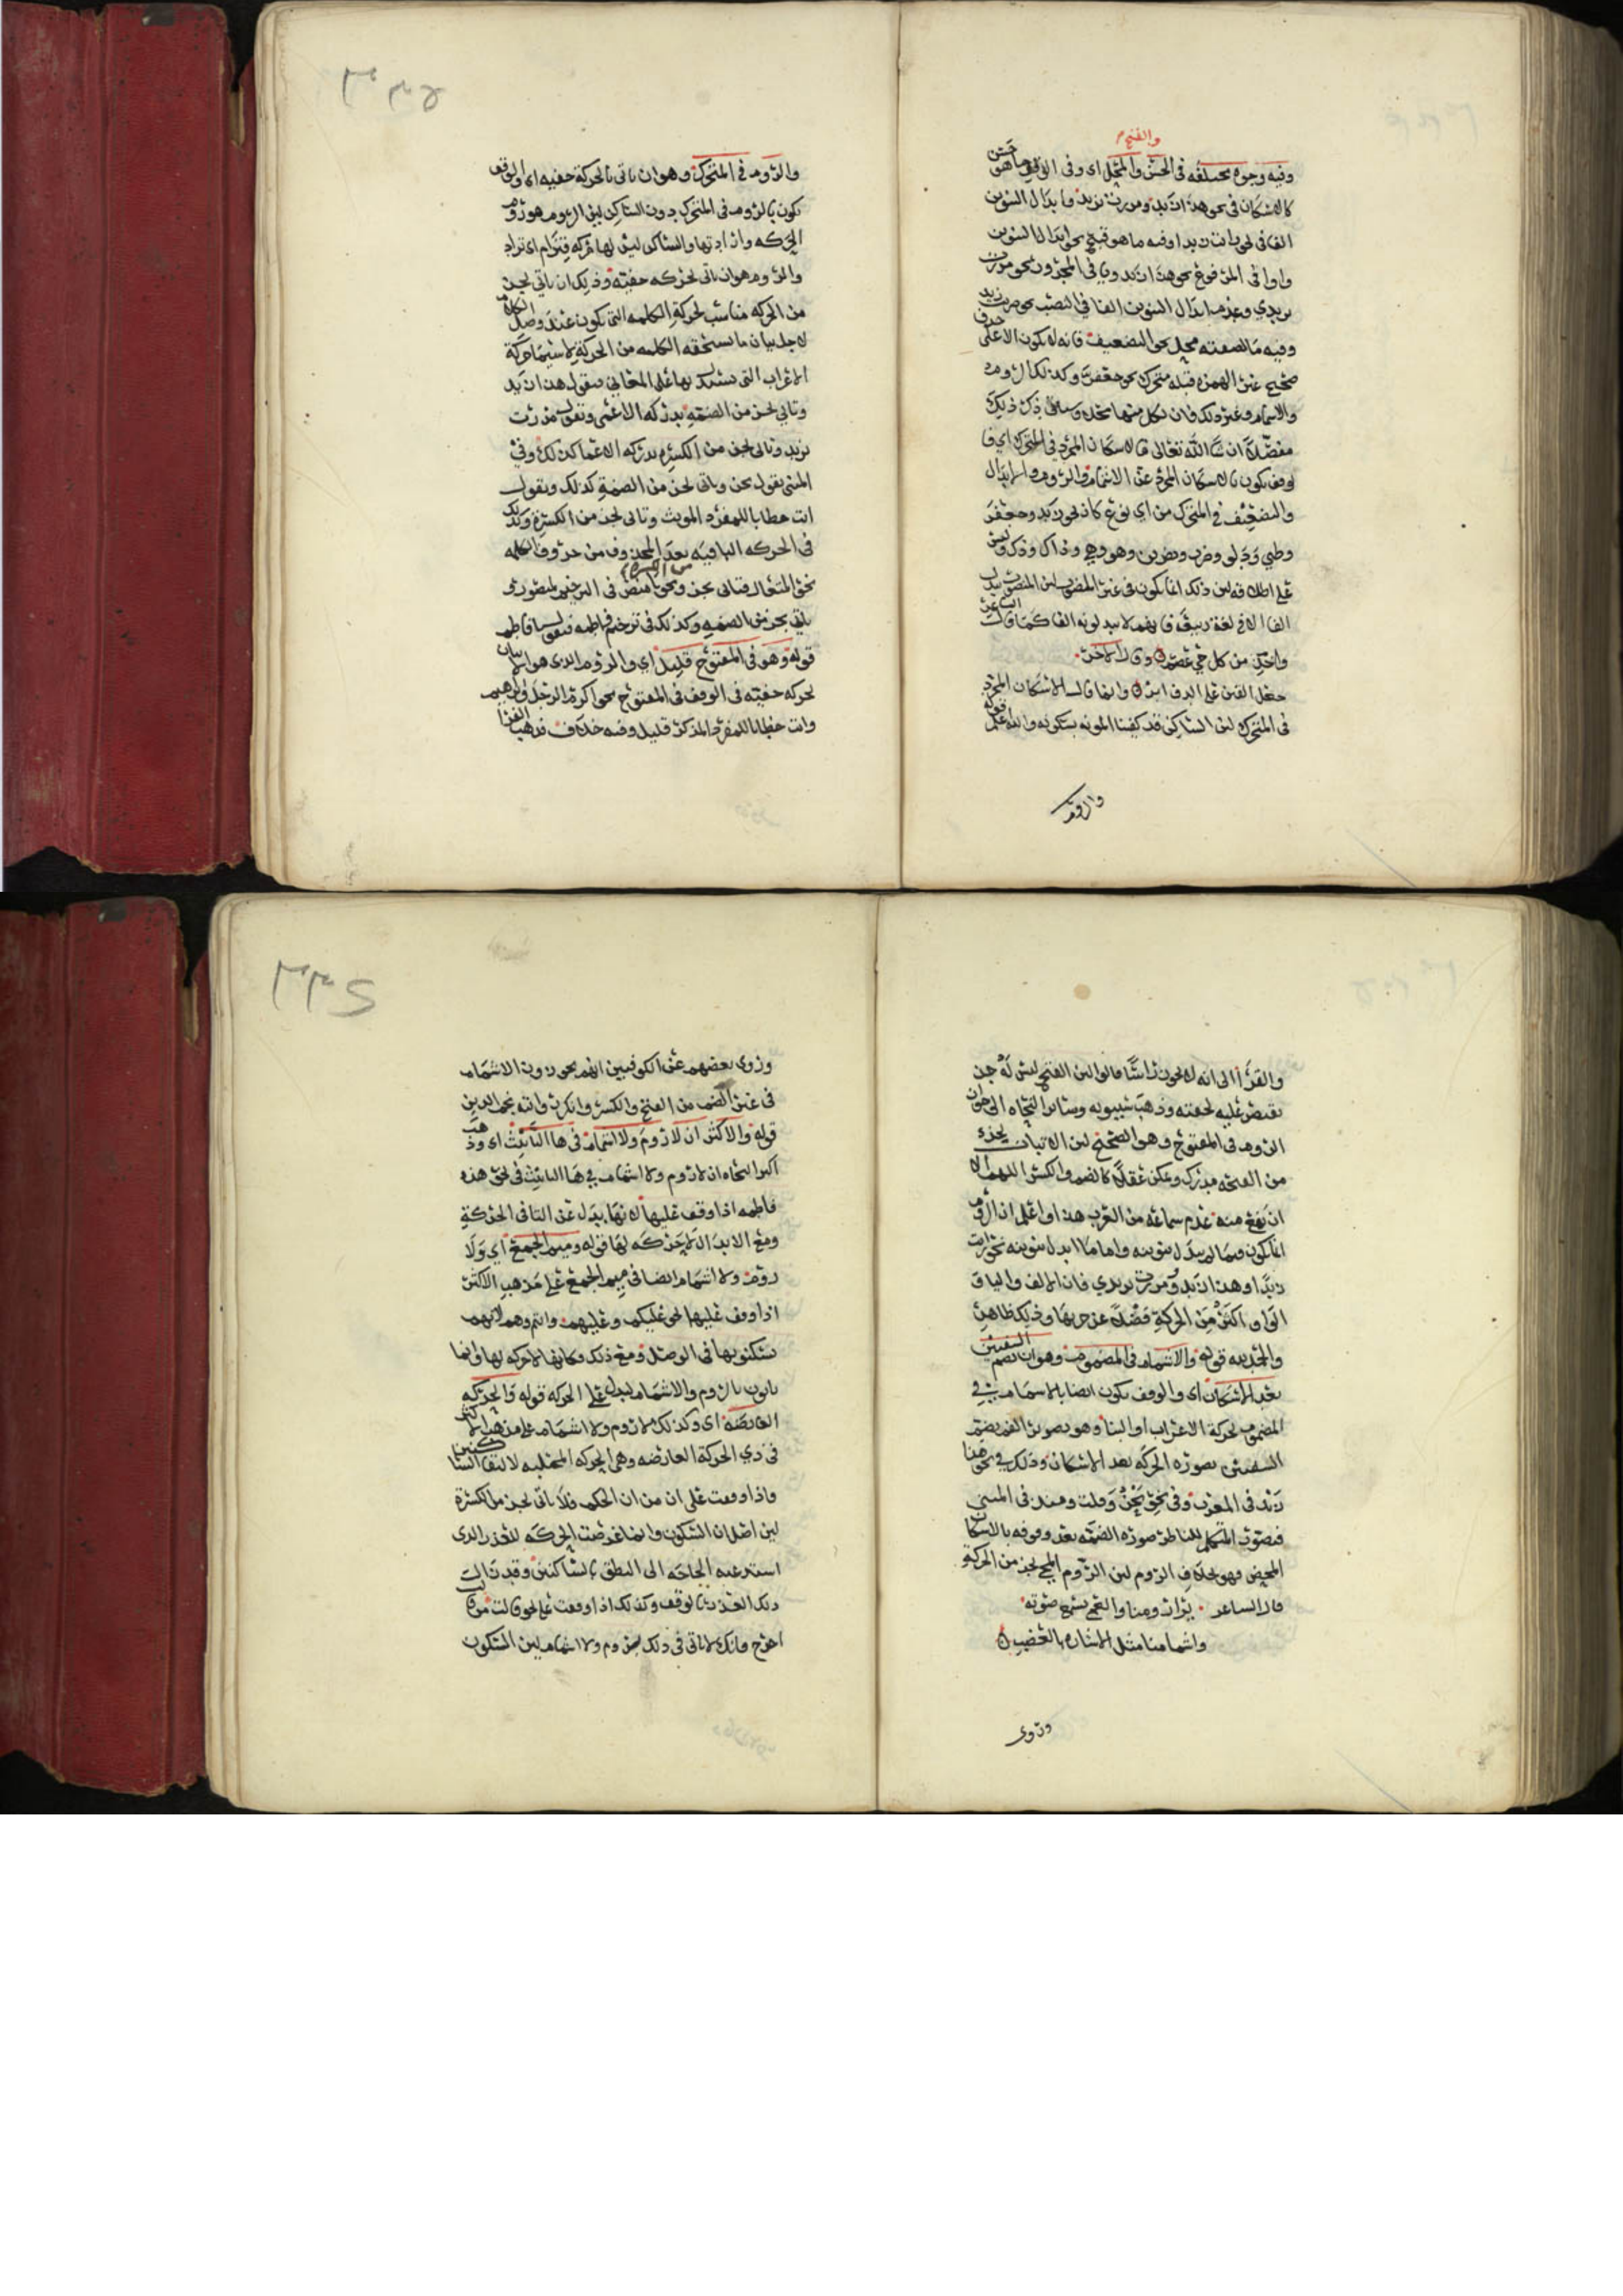 والقبح
وفيه وجوه مختلفه في الحسن والمحل اى وفى الوقف ماهو حسن
كالاسكان فى نحو هذا زيد ومررت بزيد وابدال التنوين
الفا فى نحو رايت زيدا وفيه ما هو قبيح نحو ابدال التنوين
واوا فى المرفوع نحو هذا زيدو ويا فى المجرور نحو مررت
بزيدي وعدم ابدال التنوين الفا فى النصب نحو ضربت زيد
وفيه ما لصفته محل نحو التضعيف فانه لا يكون الا على حرف
صحيح غير الهمزه قبله متحرك نحو جعفر وكذلك الروم
والاشمام وغير ذلك فان لكل منها محله وسياتى ذكر ذلك
مفصلا ان شا الله تعالى فالاسكان المجرد في المتحرك اي فا
لوقف يكون بالاسكان المجرد عن الاشمام والروم والابدال
والتضعيف في المتحرك من اي نوع كان نحو زيد وجعفر
وظبي ودلو وضرب ويضرب وهو وهي وذاك وذكر وليس
على اطلاقه لان ذلك انما يكون فى غير المنصوب لان المنصوب يبدل
الفا الا في لغة ربيعة فانهم لا يبدلونه الفا كما قال الشاعر
واخذ من كل حي عصم وقال الاخر
جعل القين على الدف ابر وانما قال الاسكان المجرد
فى المتحرك لان الساكن قد كفينا المونه بسكونه والله اعلم قوله
والروم
والروم في المتحرك وهو ان ياتى بالحركة خفيه اى والوقف
يكون بالروم فى المتحرك دون الساكن لان الروم هو روم
الحركه وارادتها والساكن ليس لها حركه فترام اى تراد
والروم هو ان ياتى بحركه خفيه وذلك ان ياتي بجز
من الحركه مناسب لحركة الكلمه التى تكون عند وصل الكلام
لاجل بيان ما تستحقه الكلمه من الحركة لا سيما حركة
الاعراب التى يستدل بها على المعاني فيقول هذا زيد
وتاتي بجز من الضمه يدركه الاعمى وتقول مررت
بزيد وتاتى بجز من الكسره يدركه الاعما كذلك وفي
المبنى يقول نحن وياتى بجز من الضمة كذلك ويقول
انت خطابا للمفرد المونث وتاتى بجز من الكسرة وكذلك
فى الحركه الباقيه بعد المحذوف من حروف الكلمه
نحو المتعال فتاتى بجز من الكسره ونحو يا منص فى الترخيم لمنصور
ياتي بجز من الضمه وكذلك فى ترخيم فاطمه فيقول يا فاطم
قوله وهو فى المفتوح قليل اي والروم الذى هو الاتيان
بحركه خفيه فى الوقف فى المفتوح نحو اكرم الرجل وابرهيم
وانت خطابا للمفرد المذكر قليل وفيه خلاف فذهب الفرا
والقرا الى انه لا يجوز راسا قالوا لان الفتح ليس له جز
يقتصر عليه لخفته وذهب سيبويه وساير النحاه الى جواز
الروم فى المفتوح وهو الصحيح لان الاتيان بجزء
من الفتحه مدرك وممكن عقلا كالضم والكسر اللهم الا
ان يقع منه عدم سماعه من العرب هذا واعلم ان الروم
انما يكون فيما لم يبدل تنوينه واما ما ابدل تنوينه نحو رايت
زيدا وهذا زيدو ومررت بزيدي فان الالف واليا و
الواو اكثر من الحركة فضلا عن جزيها وذلك ظاهر
والحمد لله قوله والاشمام فى المضموم وهو ان تضم الشفتين
بعد الاسكان اى والوقف يكون ايضا بالاشمام في
المضموم بحركة الاعراب او البنا وهو تصوير الفم بضم
الشفتين بصوره الحركه بعد الاسكان وذلك في نحو هذا
زيد فى المعرب وفى نحو نحن وقلت ومنذ فى المبني
فيصور المتكلم للناظر صوره الضمه بعد وقوفه بالاسكان
المحض فهو بخلاف الروم لان الروم المج بجز من الحركة
قال الشاعر يزاد ومنا والفم يسمع صوته
واشمامنا مثل الاشاره بالغضب
وروى
وروى بعضهم عن الكوفيين انهم يجوزون الاشمام
فى غير الضم من الفتح والكسر وانكره وانه نجم الدين
قوله والاكثر ان لا روم ولا اشمام فى ها التانيث اى وذهب
اكثر النحاه ان لا روم ولا اشمام في ها التانيث فى نحو هذه
فاطمه اذا وقف عليها لانها بدل عن التا فى الحركة
ومع الابدال لا حركه لها قوله وميم الجمع اي ولا
روم ولا اشمام ايضا فى ميم الجمع على مذهب الاكثر
اذا وقف عليها نحو عليكم وعليهم وانتم وهم لانهم
يسكنونها فى الوصل ومع ذلك فكانها لا حركه لها وانما
ياتون بالروم والاشمام ليدل على الحركه قوله والحركه
العارضه اى وكذلك لا روم ولا اشمام على مذهب الاكثر
فى ذي الحركة العارضه وهي الحركه المجتلبه لالتقا الساكنين
فاذا وقفت على ان من ان الحكم فلا ياتى بجز من الكسرة
لان اصل ان السكون وانما عرضت الحركه للعذر الذى
استدعته الحاجه الى النطق بالساكنين وقد زال
ذلك العذر بالوقف وكذلك اذا وقفت على نحو قالت من وقالت
اخرج فانك لا تاتى فى ذلك بروم ولا اشمام لان السكون